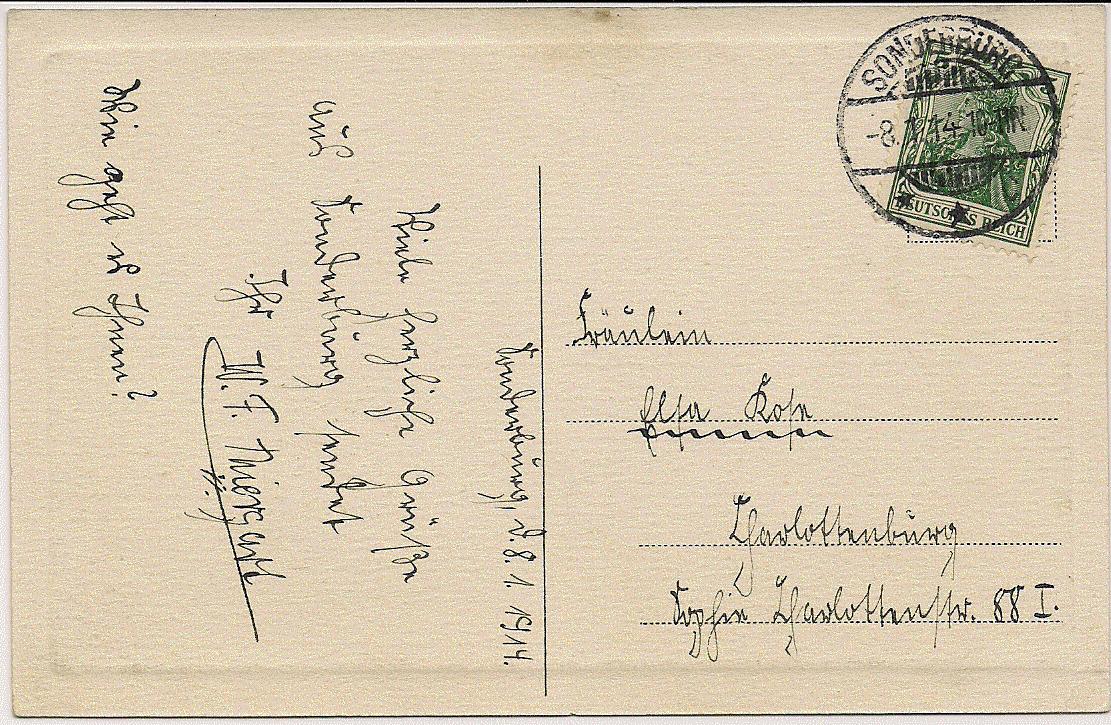 Sonderburg, d. 8. 1. 1914.
Viele herzliche Grüße
aus Sonderburg sendet
Ihr W. F.
Wie geht es Ihnen?
SONDERBURG
-8.1.14.10-
DEUTSCHES REICH
Fräulein
Elsa Rose
Charlottenburg
Sophie Charlottenstr. 88 I.